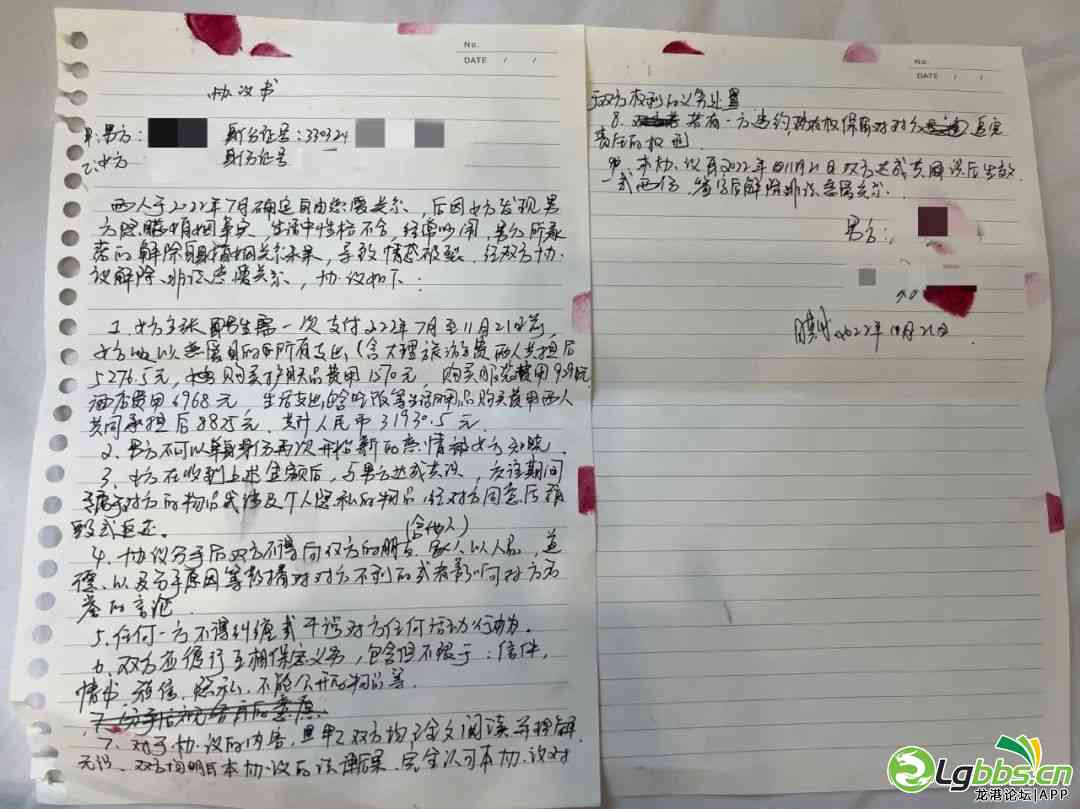 No.
DATE / /
协议书
男方: 身份证号: 330324
乙女方 身份证号
两人于2022年7月确定自由恋爱关系, 后因女方发现男
方隐瞒婚姻事实, 生活中性格不合, 经常吵闹, 男方所承
诺的解除婚姻关系未果, 导致情感破裂, 经双方协
议解除非法恋爱关系, 协议如下:
1. 女方主张 需一次支付2022年7月至11月21日前,
女方 以恋爱目的 所有支出, (含大理旅游费两人共担后
5276.5元, 购买护肤品费用1270元, 购买服装费用
酒店费用6968元, 生活支出含吃饭等生活用品购买费用两人
共同承担后8825元, 共计人民币31930.5元
2、男方不可以单身身份再次开始新的恋情被女方知晓
3、女方在收到上述金额后, 与男方达成共识, 交往期间
属于对方的物品或涉及个人隐私的物品, 经对方同意后销
毁或返还。
(含他人)
4. 协议分手后双方不得向双方的朋友、家人以人品, 道
德、以及分手原因等散播对对方不利的或者影响对方名
誉的言论
5. 任何一方不得纠缠或干涉对方任何活动行为。
6. 双方应德行互相保密义务, 包含但不限于: 信件,
情书, 短信, 照私, 不能公开的物品等.
7. 对于协议的内容, 甲乙双方均已全文阅读并理解
无误, 双方均明白本协议的法律后果, 完全认可本协议对
No.
DATE / /
于双方权利的义务处置
8. 若有一方违约 有权保留对对方 追究
责任的权利
本协议自2022年11月21日双方达成共同认识后生效
一式两份, 签字后解除非法恋爱关系.
男方:
日期2022年11月21日
Lgbbs.cn
龙港论坛|APP